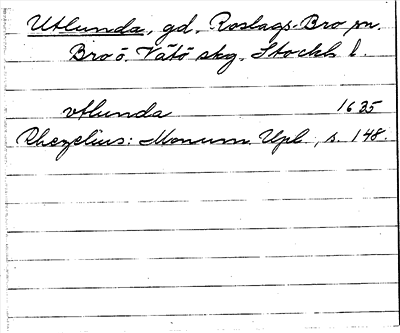 Utlunda, gd, Roslags-Bro sn.
Bro ö. Vätö skg. Stockh. l.
vtlunda 1635
Rhezelius: Monum. Upl., s. 148.